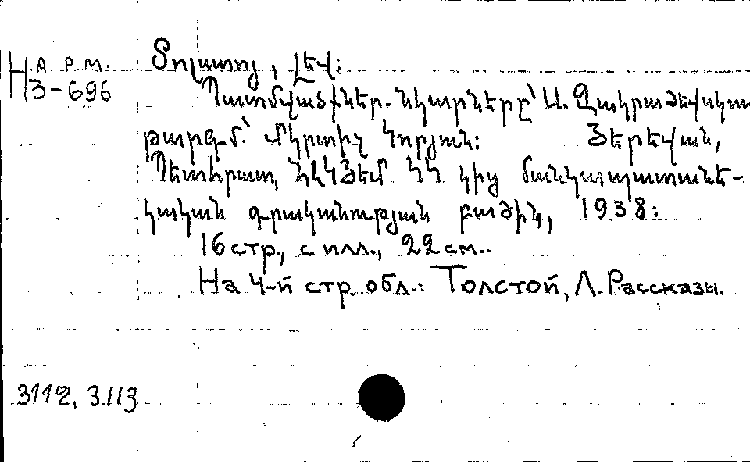 Н А Р М.
3-696
Տոլստոյ, Լեվ:
Պատմվածքներ. Նկարները՝ Ա.
թարգմ.՝ Մկրտիչ Կորյան: Յերեվան,
Պետհրատ, կից մանկապատանե-
կական գրականության բաժին, 1938:
16 стр., с илл., 22 см..
На 4-й стр обл.: Толстой, Л. Рассказы.
3112, 3113